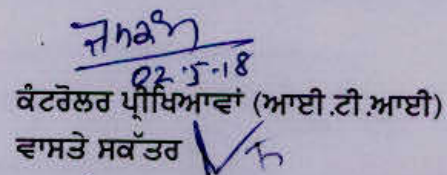 02.5.18
ਕੰਟਰੋਲਰ ਪ੍ਰੀਖਿਆਵਾਂ (ਆਈ.ਟੀ.ਆਈ)
ਵਾਸਤੇ ਸਕੱਤਰ